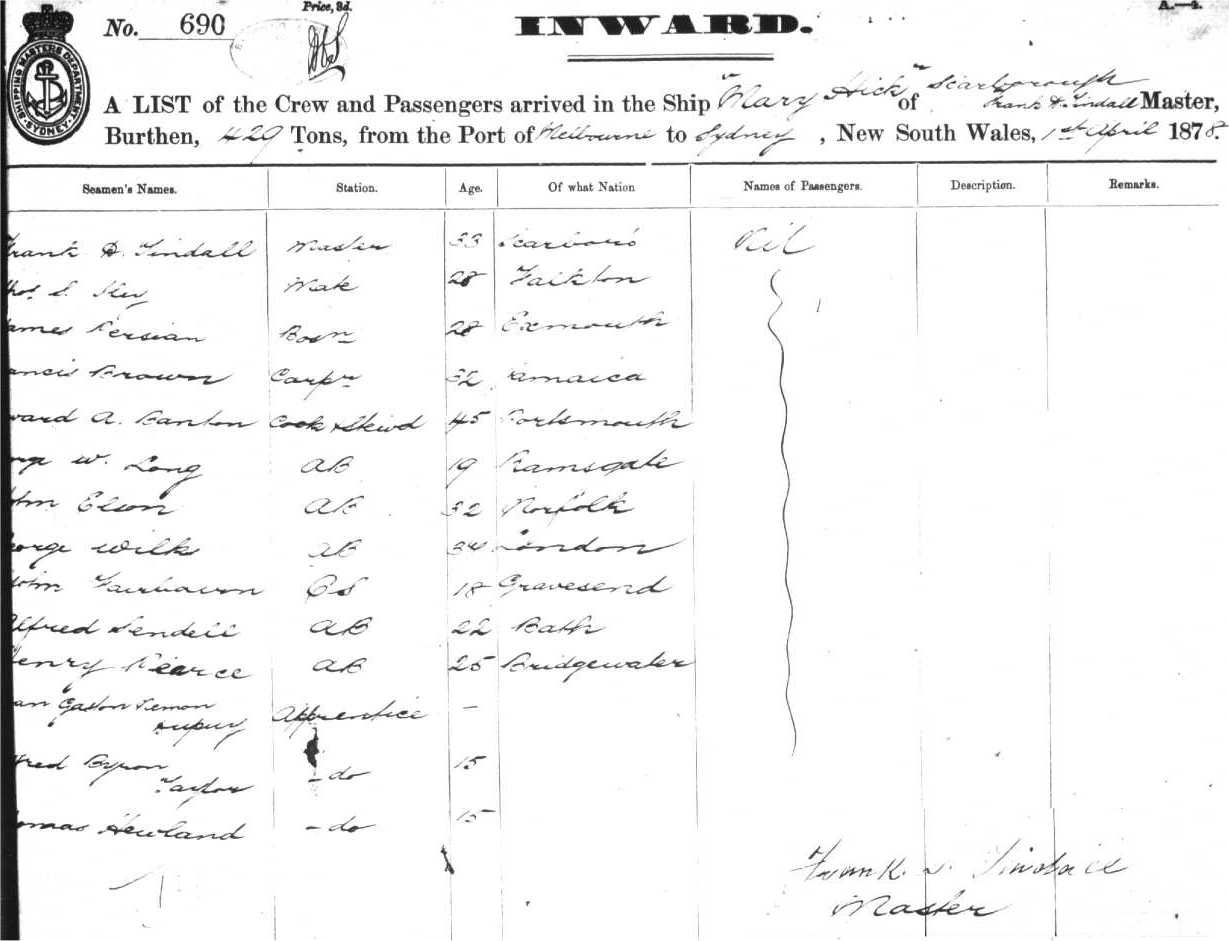 Price, 3d.
A.—4.
No. 690
INWARD.
SHIPPING MASTERS DEPARTMENT SYDNEY
A LIST of the Crew and Passengers arrived in the Ship "Mary Hick" of Scarborough Frank Tindall Master,
Burthen, 429 Tons, from the Port of Melbourne to Sydney, New South Wales, 1st April 1878
Seamen's Names. Station. Age. Of what Nation Names of Passengers. Description. Remarks.
Frank D. Tindall Master 33 Scarboro Nil
Mate 28 Falkton
ames Persian Bosn 28 Exmouth
ancis Brown Carpr 32 Jamaica
ward A. Banton Cook & Stewd 45 Portsmouth
rge W. Long AB 19 Ramsgate
Elson AB 32 Norfolk
eorge Wilk AB 34 London
John Fairbairn OS 18 Gravesend
Alfred Sendell AB 22 Bath
Henry Pearce AB 25 Bridgewater
an Gaston Apprentice –
Dupuy
fred Byron – do 15
Taylor
omas Newland – do 15
Frank D. Tindall
Master